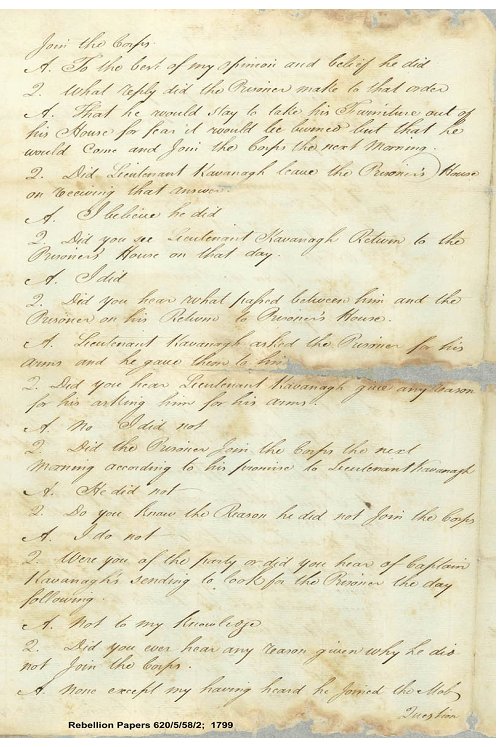 Join the Corps.
A. To the best of my opinion and belief he did
Q. What reply did the Prisoner make to that order
A. That he would stay to take his Furniture out of
his House for fear it would be burned but that he
would Come and Join the Corps the next Morning.
Q. Did Lieutenant Kavanagh leave the Prisoner's House
on receiving that answer.
A. I believe he did
Q. Did you see Lieutenant Kavanagh Return to the
Prisoner's House on that day.
A. I did
Q. Did you hear what passed between him and the
Prisoner on his Return to Prisoner's House.
A. Lieutenant Kavanagh asked the Prisoner for his
arms and he gave them to him
Q. Did you hear Lieutenant Kavanagh give any reason
for his asking him for his arms.
A. No I did not
Q. Did the Prisoner Join the Corps the next
Morning according to his promise to Lieutenant Kavanagh
A. He did not
Q. Do you Know the Reason he did not Join the Corps
A. I do not
Q. Were you of the party or did you hear of Captain
Kavanagh's sending to look for the Prisoner the day
following.
A. Not to my Knowledge
Q. Did you ever hear any reason given why he did
not Join the Corps.
A. None except my having heard he Joined the Mob
Question
Rebellion Papers 620/5/58/2; 1799